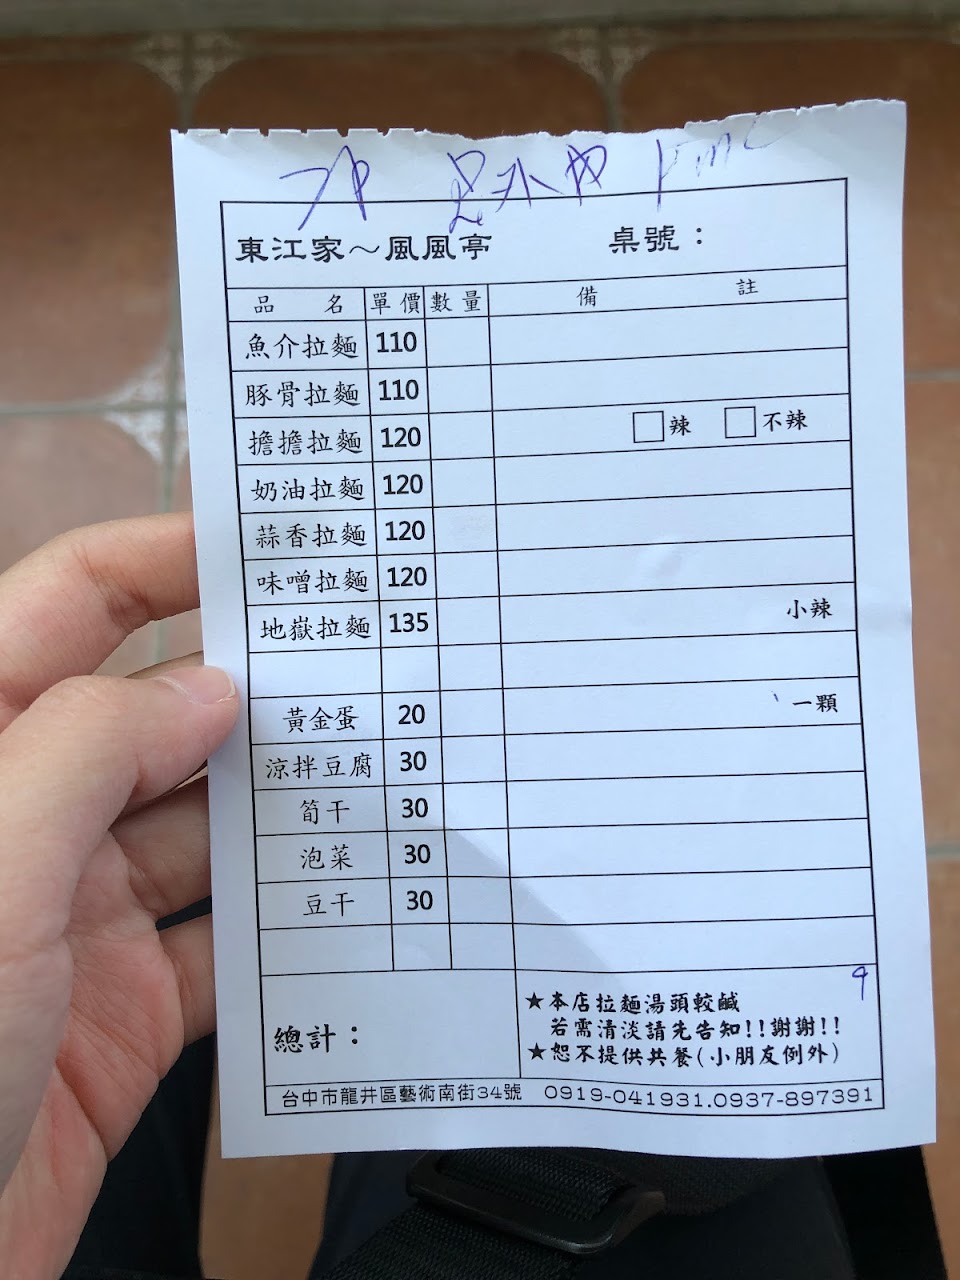 東江家～風風亭 桌號：
品名 單價 數量 備註
魚介拉麵 110
豚骨拉麵 110
擔擔拉麵 120 □辣 □不辣
奶油拉麵 120
蒜香拉麵 120
味噌拉麵 120
地獄拉麵 135 小辣
黃金蛋 20 一顆
涼拌豆腐 30
筍干 30
泡菜 30
豆干 30
總計：
9
★本店拉麵湯頭較鹹
若需清淡請先告知!!謝謝!!
★恕不提供共餐(小朋友例外)
台中市龍井區藝術南街34號 0919-041931.0937-897391